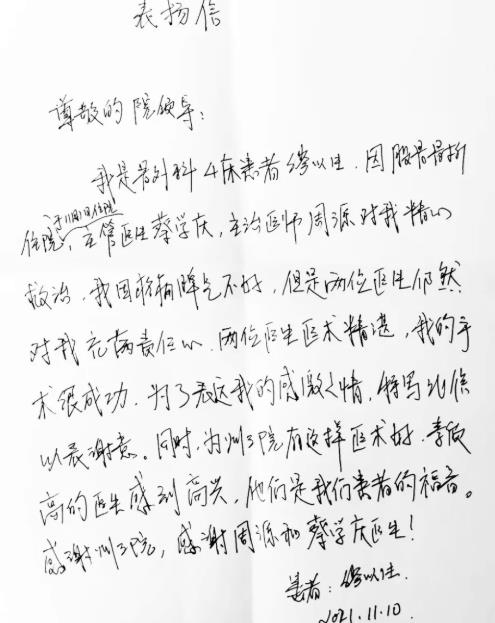 表扬信
尊敬的院领导：
我是骨外科4床患者缪以生．因股骨骨折
于11月1日住院
住院，主管医生蔡学庆，主治医师周源对我精心
救治．我因疾病脾气不好，但是两位医生仍然
对我充满责任心．两位医生医术精湛，我的手
术很成功．为了表达我的感激之情．特写此信
以表谢意。同时，为州三院有这样医术好．素质
高的医生感到高兴，他们是我们患者的福音。
感谢州三院，感谢周源和蔡学庆医生！
患者：缪以生．
2021.11.10.